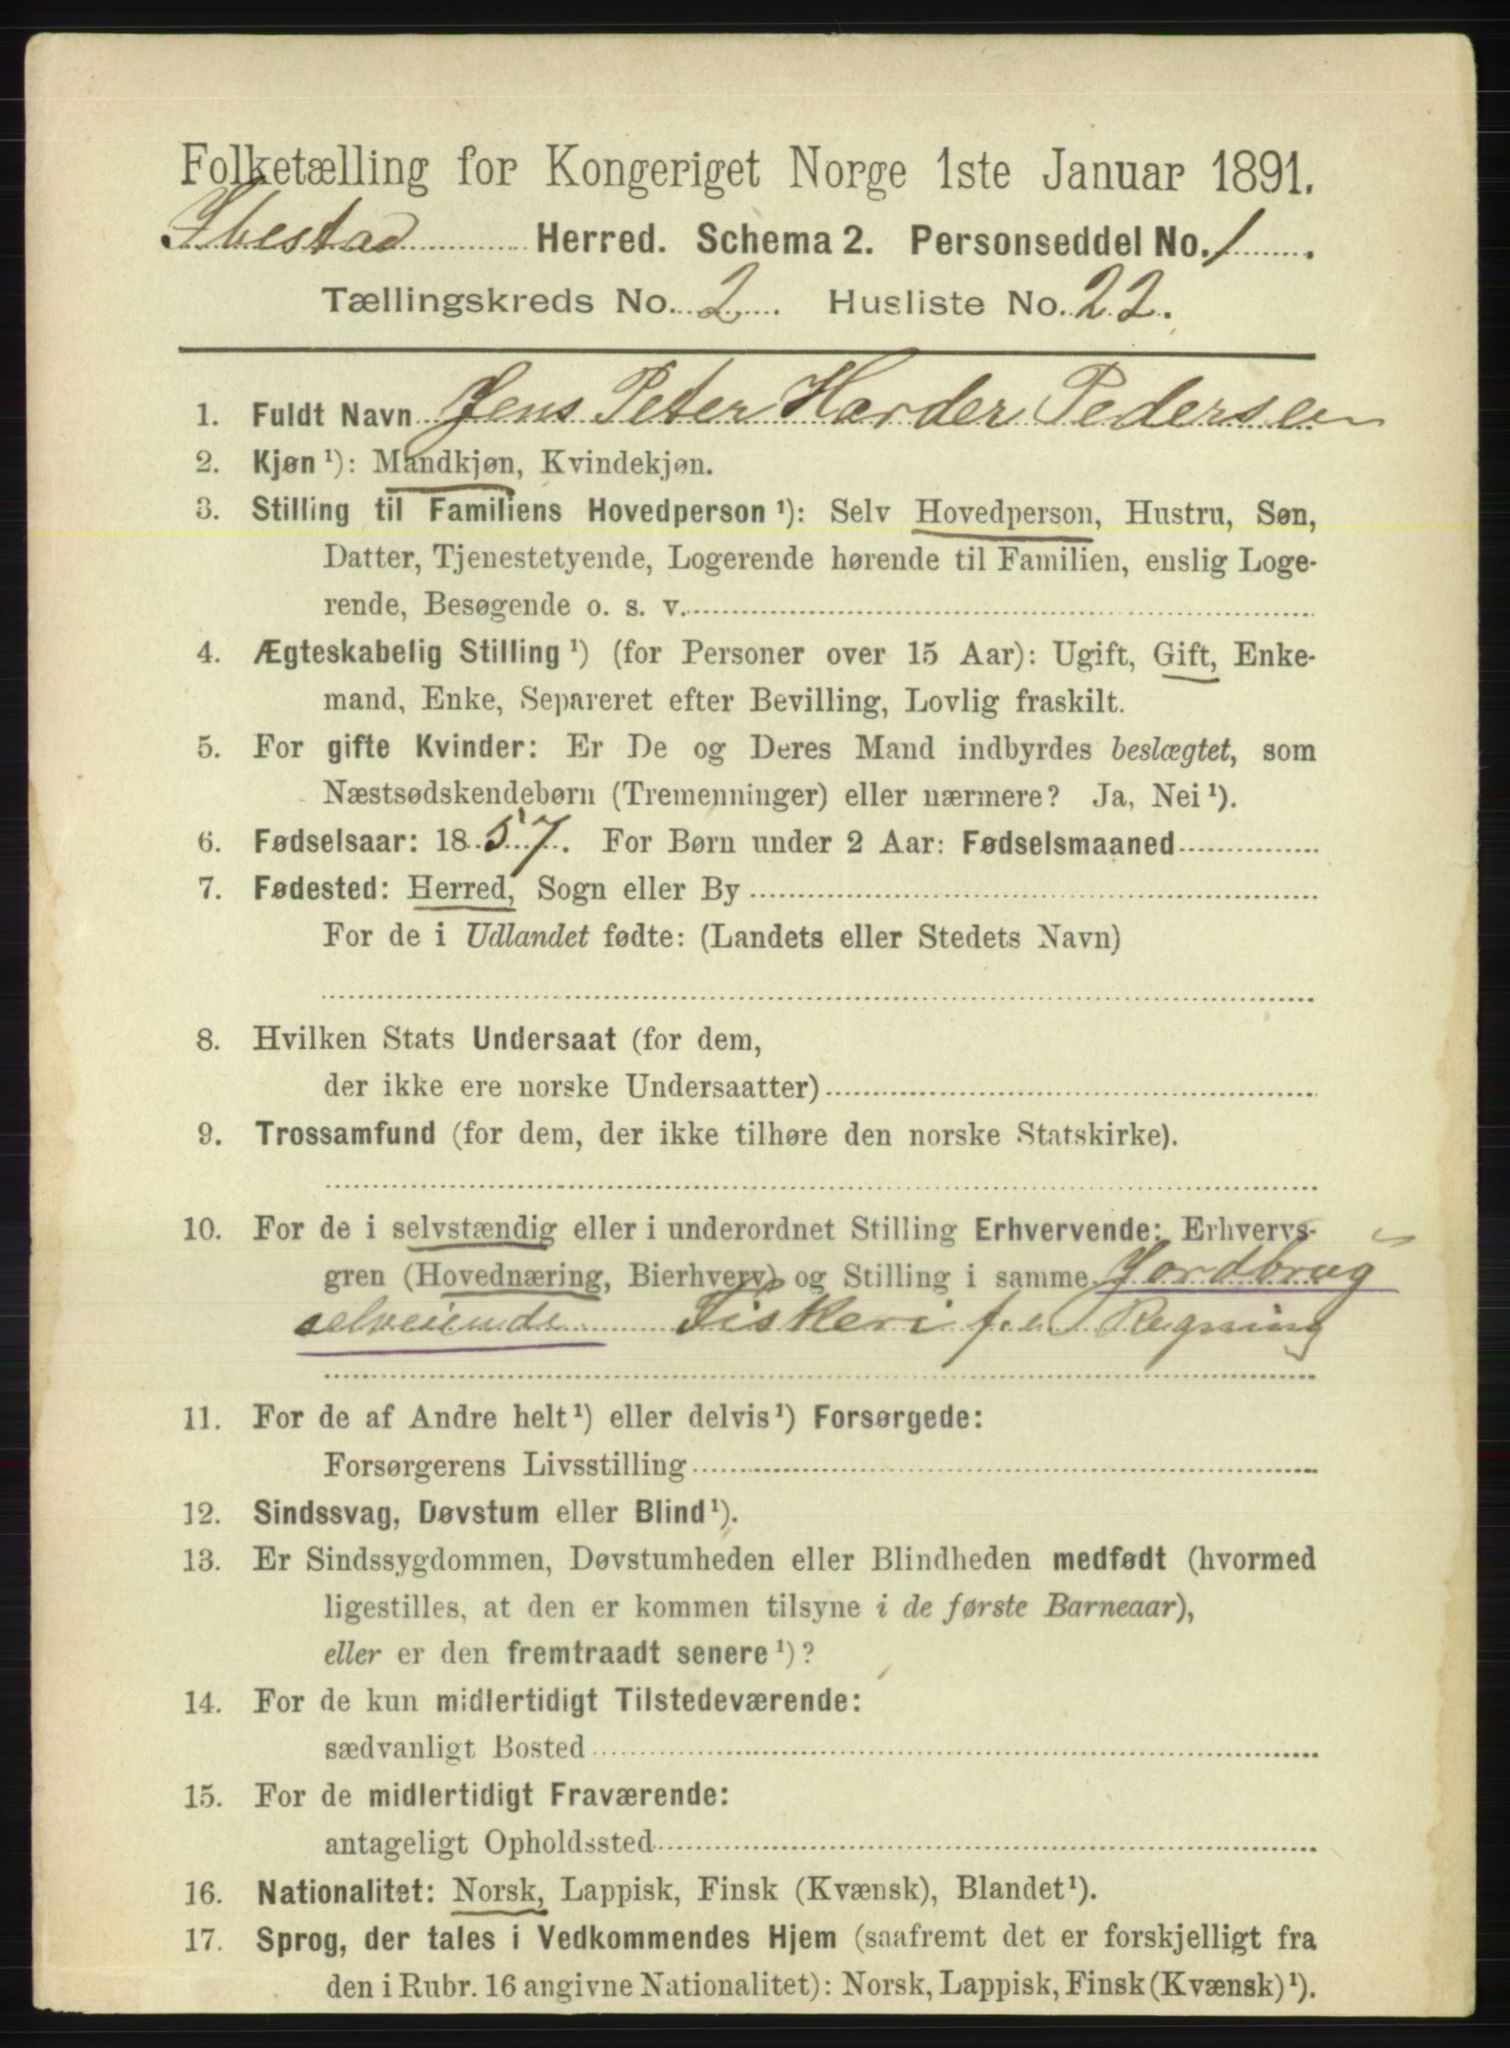 Folketælling for Kongeriget Norge 1ste Januar 1891.
Ibestad Herred. Schema 2. Personseddel No. 1.
Tællingskreds No. 2. Husliste No. 22.
1. Fuldt Navn Jens Peter Harder Pedersen
2. Kjøn ¹): Mandkjøn, Kvindekjøn.
3. Stilling til Familiens Hovedperson ¹): Selv Hovedperson, Hustru, Søn,
Datter, Tjenestetyende, Logerende hørende til Familien, enslig Loge-
rende, Besøgende o. s. v.
4. Ægteskabelig Stilling ¹) (for Personer over 15 Aar): Ugift, Gift, Enke-
mand, Enke, Separeret efter Bevilling, Lovlig fraskilt.
5. For gifte Kvinder: Er De og Deres Mand indbyrdes beslægtet, som
Næstsødskendebørn (Tremenninger) eller nærmere? Ja, Nei ¹).
6. Fødselsaar: 1857. For Børn under 2 Aar: Fødselsmaaned
7. Fødested: Herred, Sogn eller By
For de i Udlandet fødte: (Landets eller Stedets Navn)
8. Hvilken Stats Undersaat (for dem,
der ikke ere norske Undersaatter)
9. Trossamfund (for dem, der ikke tilhøre den norske Statskirke).
10. For de i selvstændig eller i underordnet Stilling Erhvervende: Erhvervs-
gren (Hovednæring, Bierhverv) og Stilling i samme Jordbrug
selveiende Fiskeri f. e. Regning
11. For de af Andre helt ¹) eller delvis ¹) Forsørgede:
Forsørgerens Livsstilling
12. Sindssvag, Døvstum eller Blind ¹).
13. Er Sindssygdommen, Døvstumheden eller Blindheden medfødt (hvormed
ligestilles, at den er kommen tilsyne i de første Barneaar),
eller er den fremtraadt senere ¹)?
14. For de kun midlertidigt Tilstedeværende:
sædvanligt Bosted
15. For de midlertidigt Fraværende:
antageligt Opholdssted
16. Nationalitet: Norsk, Lappisk, Finsk (Kvænsk), Blandet ¹).
17. Sprog, der tales i Vedkommendes Hjem (saafremt det er forskjelligt fra
den i Rubr. 16 angivne Nationalitet): Norsk, Lappisk, Finsk (Kvænsk) ¹).